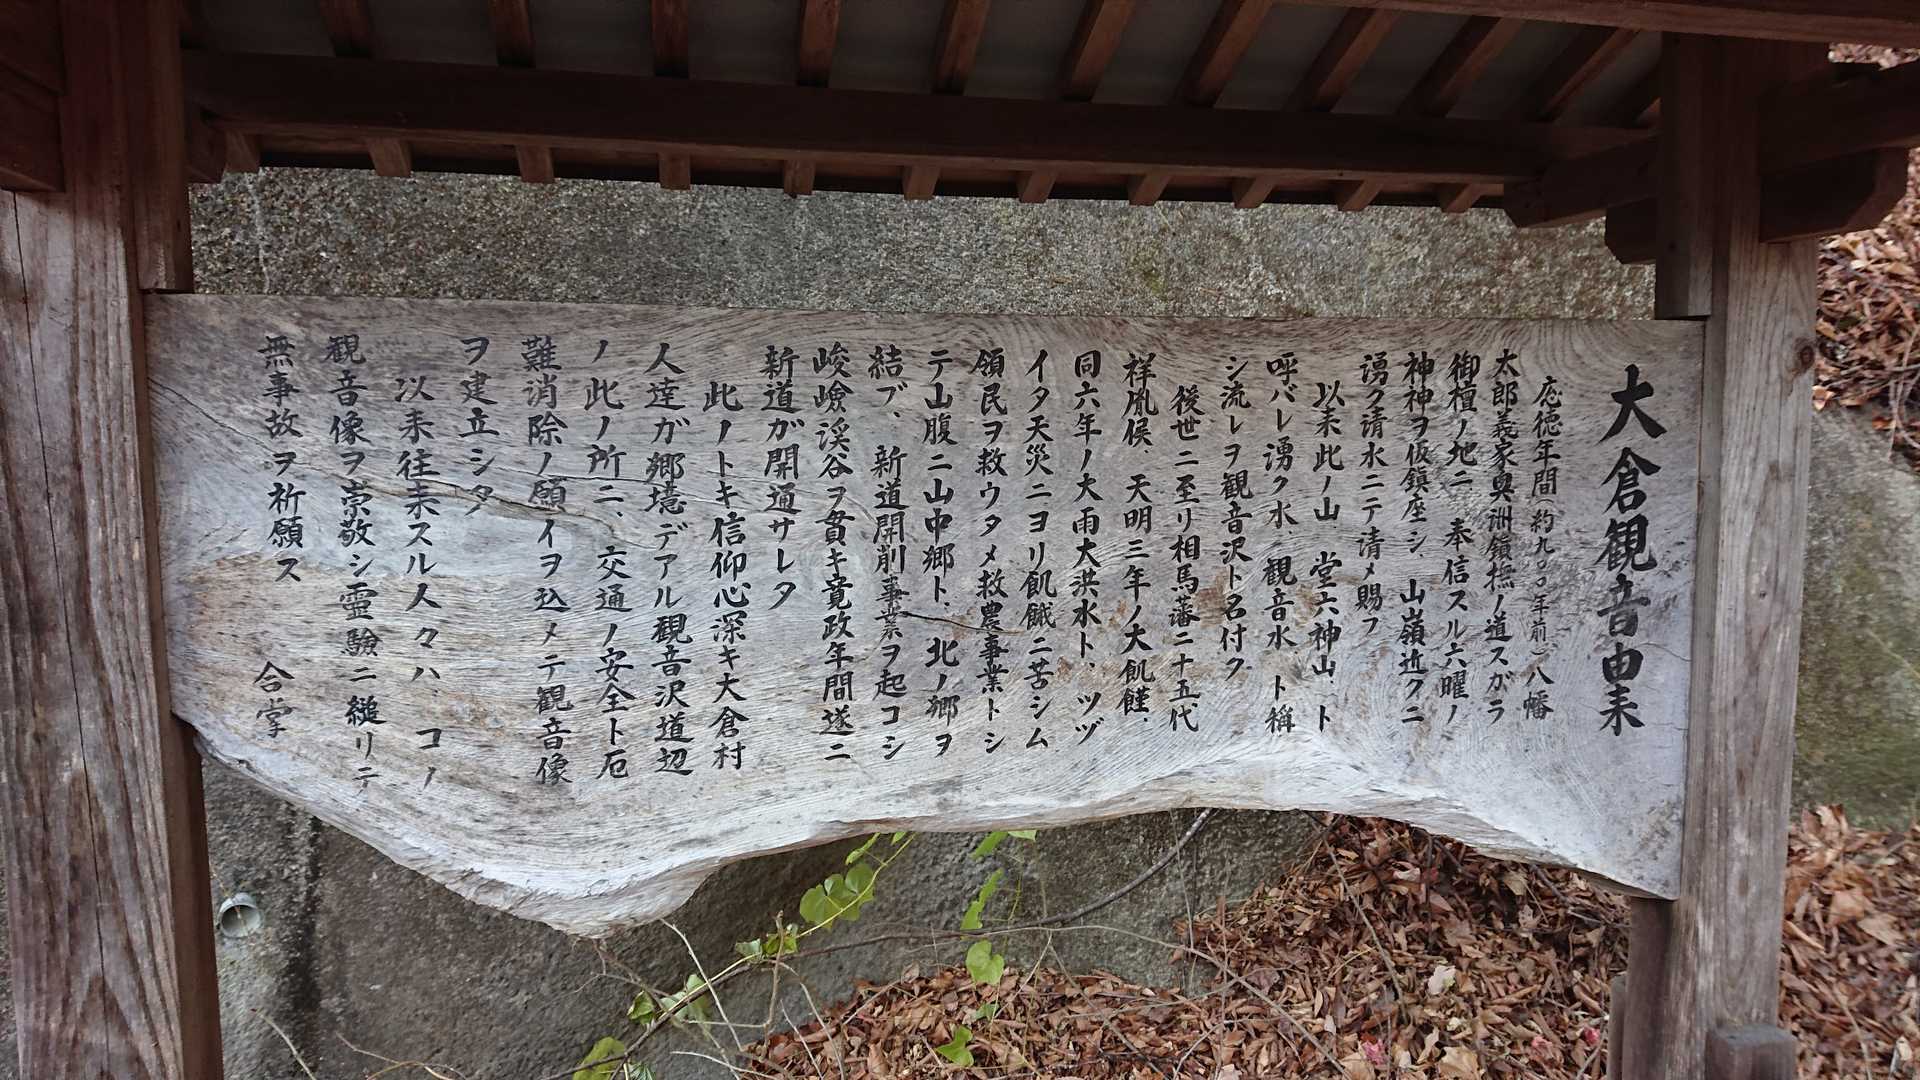 大倉観音由来
応徳年間(約九〇〇年前)、八幡
太郎義家奥洲鎮撫ノ道スガラ
御檀ノ地ニ 奉信スル六曜ノ
神神ヲ仮鎮座シ、山嶺近クニ
湧ク清水ニテ清メ賜フ
以来此ノ山 堂六神山、ト
呼バレ湧ク水、観音水 ト稱
シ流レヲ観音沢ト名付ク
後世ニ至リ相馬藩二十五代
祥胤候、天明三年ノ大飢饉、
同六年ノ大雨大洪水ト、ツヅ
イタ天災ニヨリ飢餓ニ苦シム
領民ヲ救ウタメ救農事業トシ
テ山腹ニ山中郷ト、北ノ郷ヲ
結ブ、新道開削事業ヲ起コシ
峻嶮渓谷ヲ貫キ寛政年間遂ニ
新道が開通サレタ
此ノトキ信仰心深キ大倉村
人達ガ郷境デアル観音沢道辺
ノ此ノ所ニ、交通ノ安全ト厄
難消除ノ願イヲ込メテ観音像
ヲ建立シタ
以来往来スル人々ハ、コノ
観音像ヲ崇敬シ霊驗ニ縋リテ
無事故ヲ祈願ス 合掌